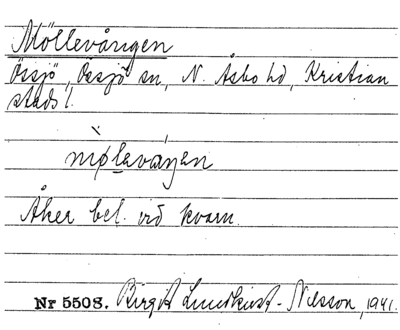 Möllevången
Össjö, Össjö sn, N. Åsbo hd, Kristian
stads l.
mø̀leváŋen
Åker bel. vid kvarn.
Nr 5508. Birgit Lundkvist-Nilsson, 1941.